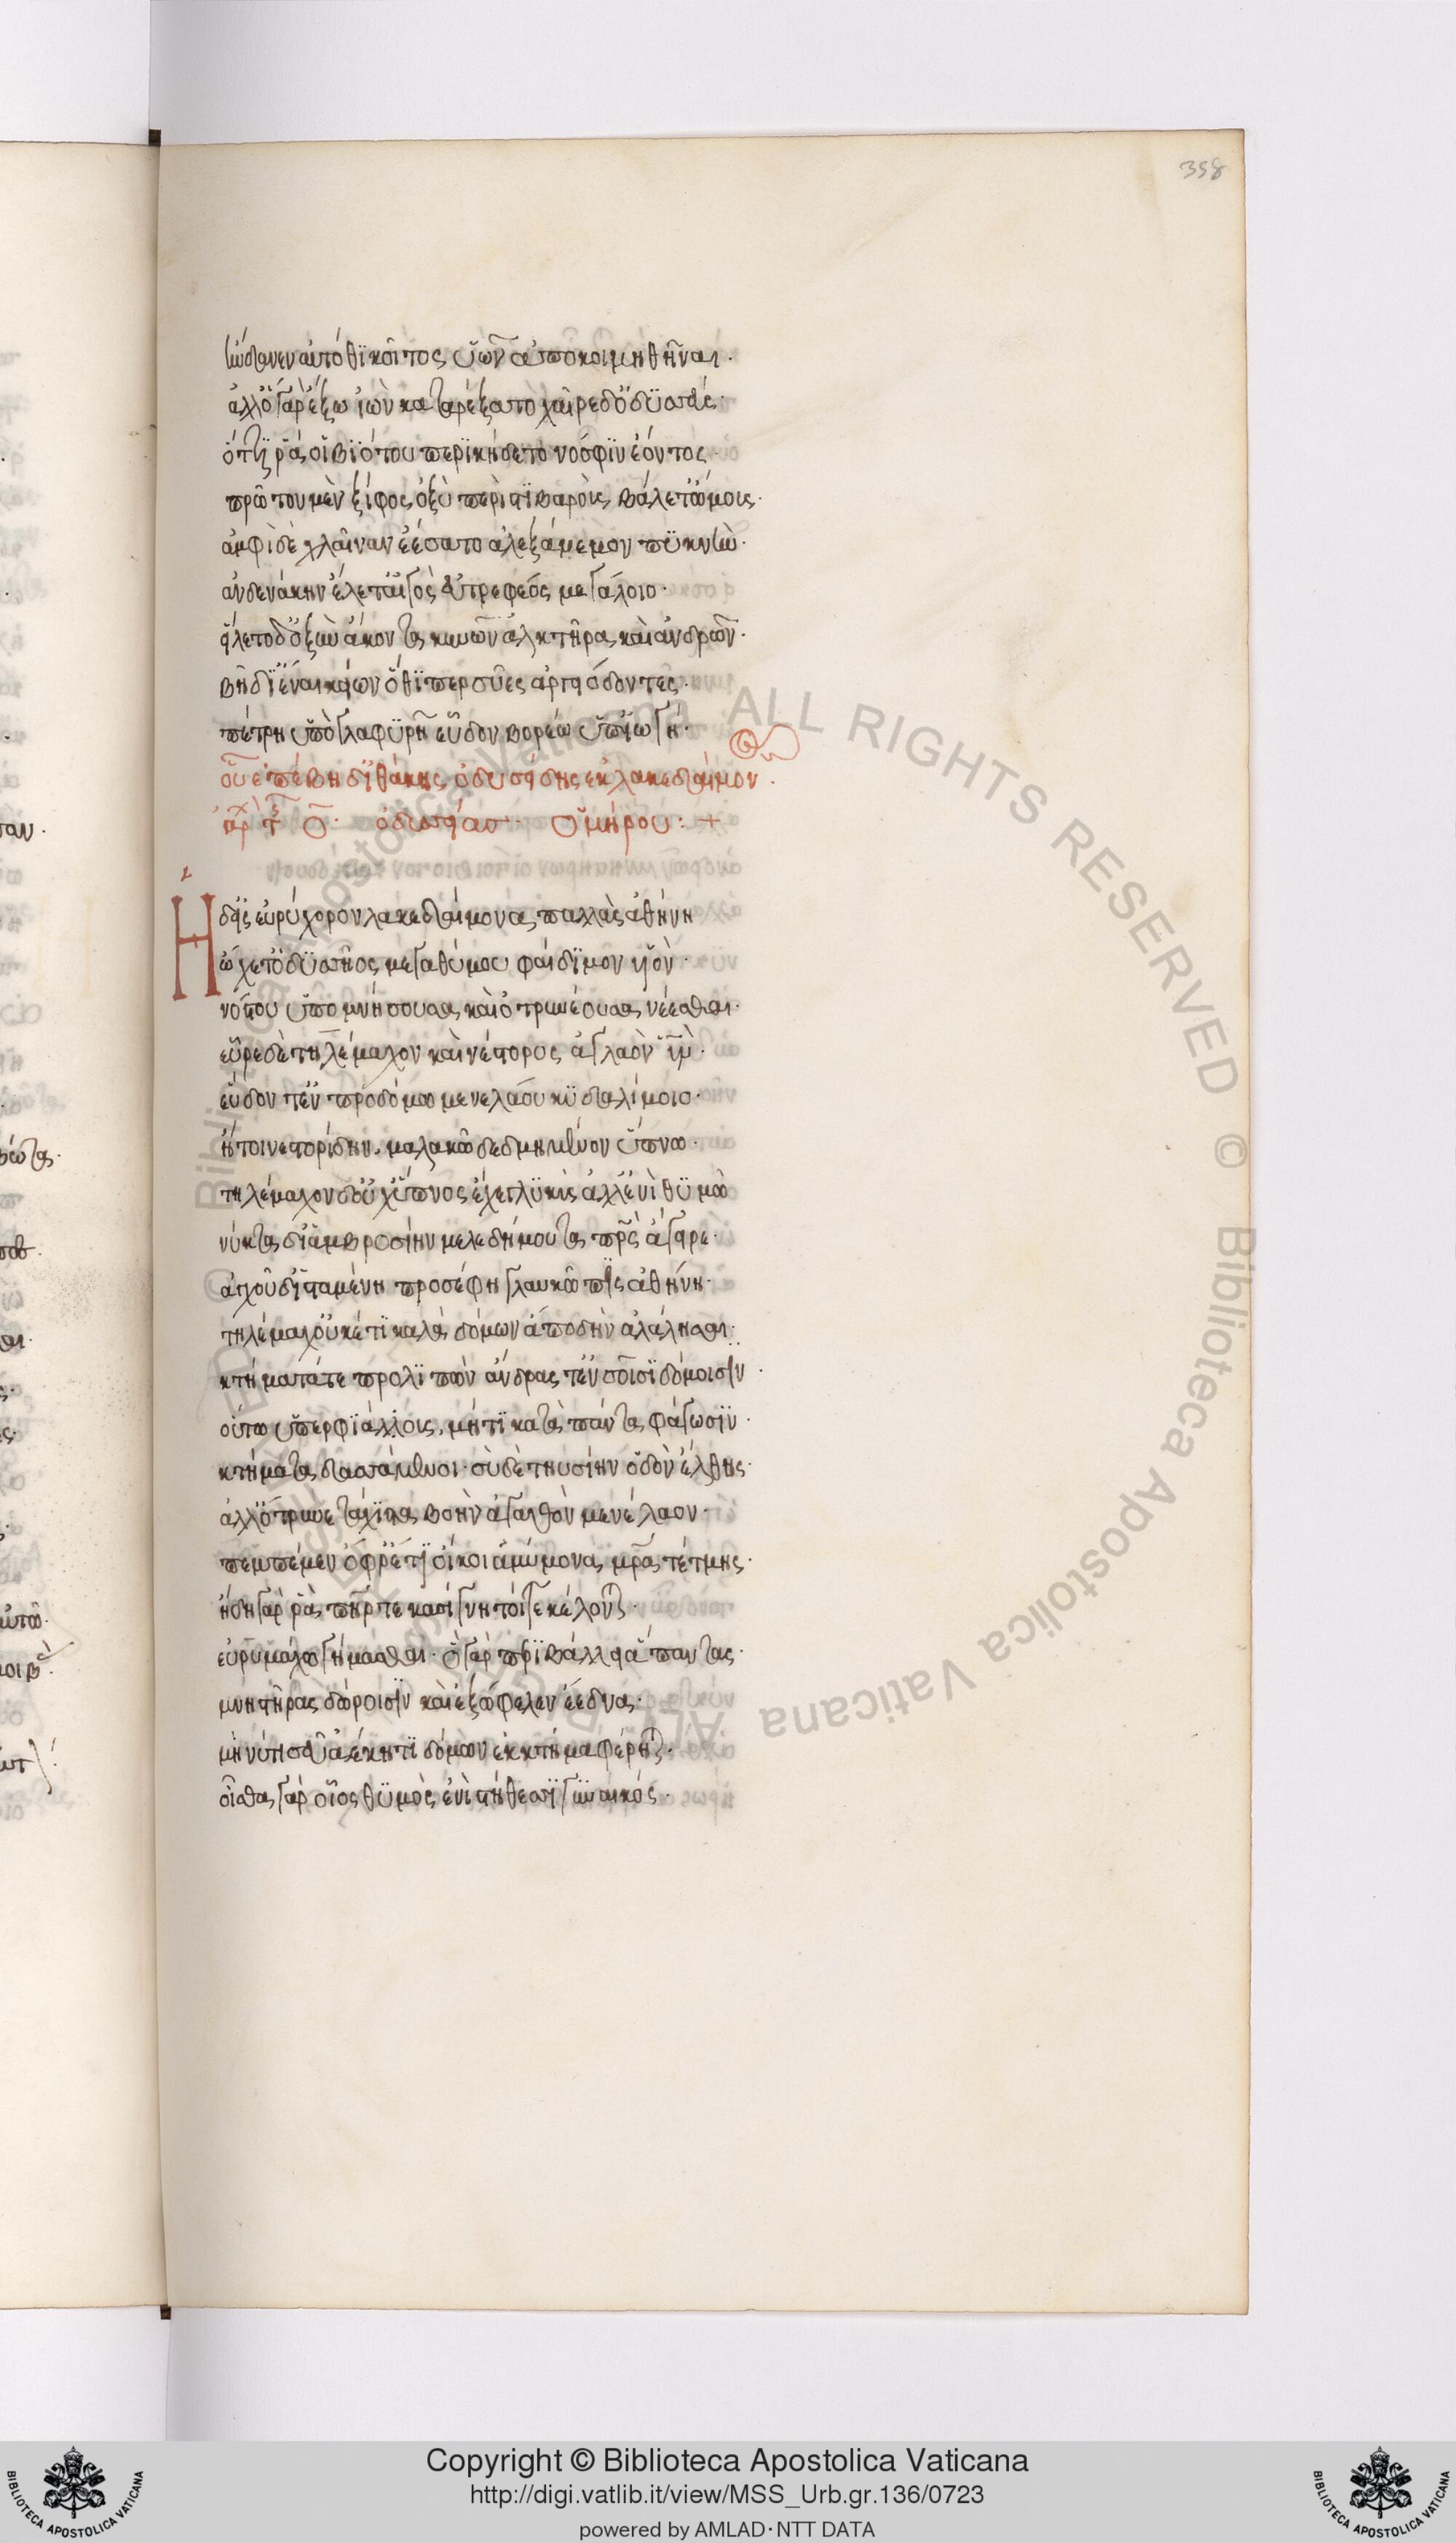 358
ἥνδανεν αὐτόθι κοῖτος ὑῶν ἀποκοιμηθῆναι.
ἀλλ' ὃ γὰρ ἔξω ἰὼν κα
ὅττι ῥά οἱ βιότου περικήδετο νόσφιν ἐόντος.
πρῶτον μὲν ξίφος ὀξὺ περὶ στιβαροῖς βάλετ' ὤμοις.
ἀμφὶ δὲ χλαῖναν ἑέσσατο ἀλεξάνεμον πυκνὴν.
ἂν δὲ νάκην ἕλετ' αἰγὸς ἐϋτρεφέος μεγάλοιο.
εἵλετο δ' ὀξὺν ἄκοντα κυνῶν ἀλκτῆρα καὶ ἀνδρῶν.
βῆ δ' ἰέναι κείων ὅθι περ σύες ἀργιόδοντες.
πέτρη ὕπο γλαφυρῆ εὗδον βορέω ὑπ' ἰωγῆ.
οὗ ἐπέβη δ' ἰθάκης ὀδυσείδης ἐκ λακεδαίμον.
ἀρχὴ τ ο. ὀδυσσείας ὁμήρου: +
Ἡ δ' εἰς εὐρύχορον λακεδαίμονα παλλὰς ἀθήνη
ὤχετ' ὀδυσσῆος μεγαθύμου φαίδιμον υἱὸν.
νόστου ὑπομνήσουσα καὶ ὀτρυνέουσα νέεσθαι.
εὗρε δὲ τηλέμαχον καὶ νέστορος ἀγλαὸν υἱὸν.
εὕδοντ' ἐν προδόμω μενελάου κυδαλίμοιο.
ἤτοι νεστορίδην, μαλακῶ δεδμημένον ὕπνω.
τηλέμαχον δ' οὐχ' ὕπνος ἔχε γλυκὺς ἀλλ' ἐνὶ θυμῶ
νύκτα δι' ἀμβροσίην μελεδήματα πατρὸς ἔγειρε.
ἀγχοῦ δ' ἱσταμένη προσέφη γλαυκῶπις ἀθήνη.
τηλέμαχ' οὐκέτι καλὰ δόμων ἄπο δὴν ἀλάλησαι.
κτήματά τε προλιπὼν ἄνδρας τ' ἐν σοῖσι δόμοισιν.
οὕτω ὑπερφιάλλους, μή τι κατὰ πάντα φάγωσιν.
κτήματα δασσάμενοι. σὺ δὲ τηυσίην ὁδὸν ἔλθης.
ἀλλ' ὄτρυνε τάχιστα βοὴν ἀγαθὸν μενέλαον.
πεμπέμεν ὄφρ' ἔτι οἴκοι ἀμύμονα μητέρα τέτμης.
ἤδη γάρ ῥα πατήρ τε κασίγνητοί τε κέλονται.
εὐρυμάχω γήμασθαι. ὃ γὰρ περιβάλλει ἅπαντας.
μνηστῆρας δώροισιν καὶ ἐξώφελεν ἔεδνα.
μή νύ τι σεῦ ἀέκητι δόμων ἐκ κτῆμα φέρηται.
οἶσθα γὰρ οἷος θυμὸς ἐνὶ στήθεσσι γυναικός.
Copyright © Biblioteca Apostolica Vaticana
http://digi.vatlib.it/view/MSS_Urb.gr.136/0723
powered by AMLAD·NTT DATA